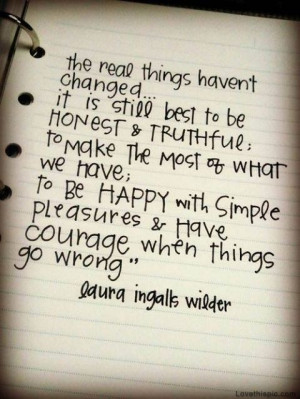 the real things haven't
changed...
it is still best to be
HONEST & TRUTHFUL;
to MAKE THE MOST OF WHAT
we HAVE;
to BE HAPPY with SIMPLE
PLEASURES & HAVE
COURAGE when THINGS
go WRONG"
laura ingalls wilder
Lovethispic.com